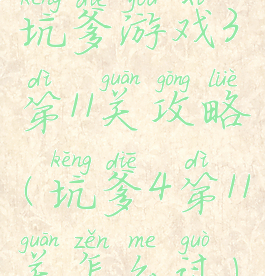 kēng diē yóu xì
坑爹游戏3
dì guān gōng lüè
第11关攻略
kēng diē dì
(坑爹4第11
guān zěn me guò
关怎么过)